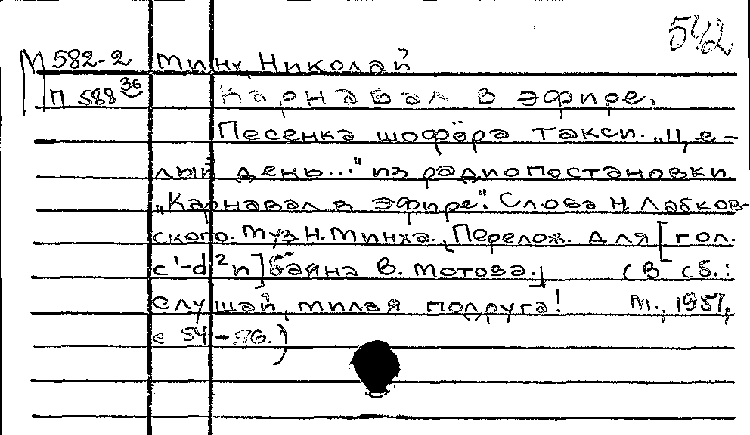 542
М 582-2 Минх, Николай
П 588 36 Карнавал в эфире.
Песенка шофёра такси. „Це-
лый день..." из радиопостановки
„Карнавал в эфире". Слова Н. Лабков-
ского. Муз Н. Минха. Перелож. для [гол.
c¹-d² и] баяна В. Мотова. (В сб.:
Слушай, милая подруга! М., 1957,
с 54-56.)